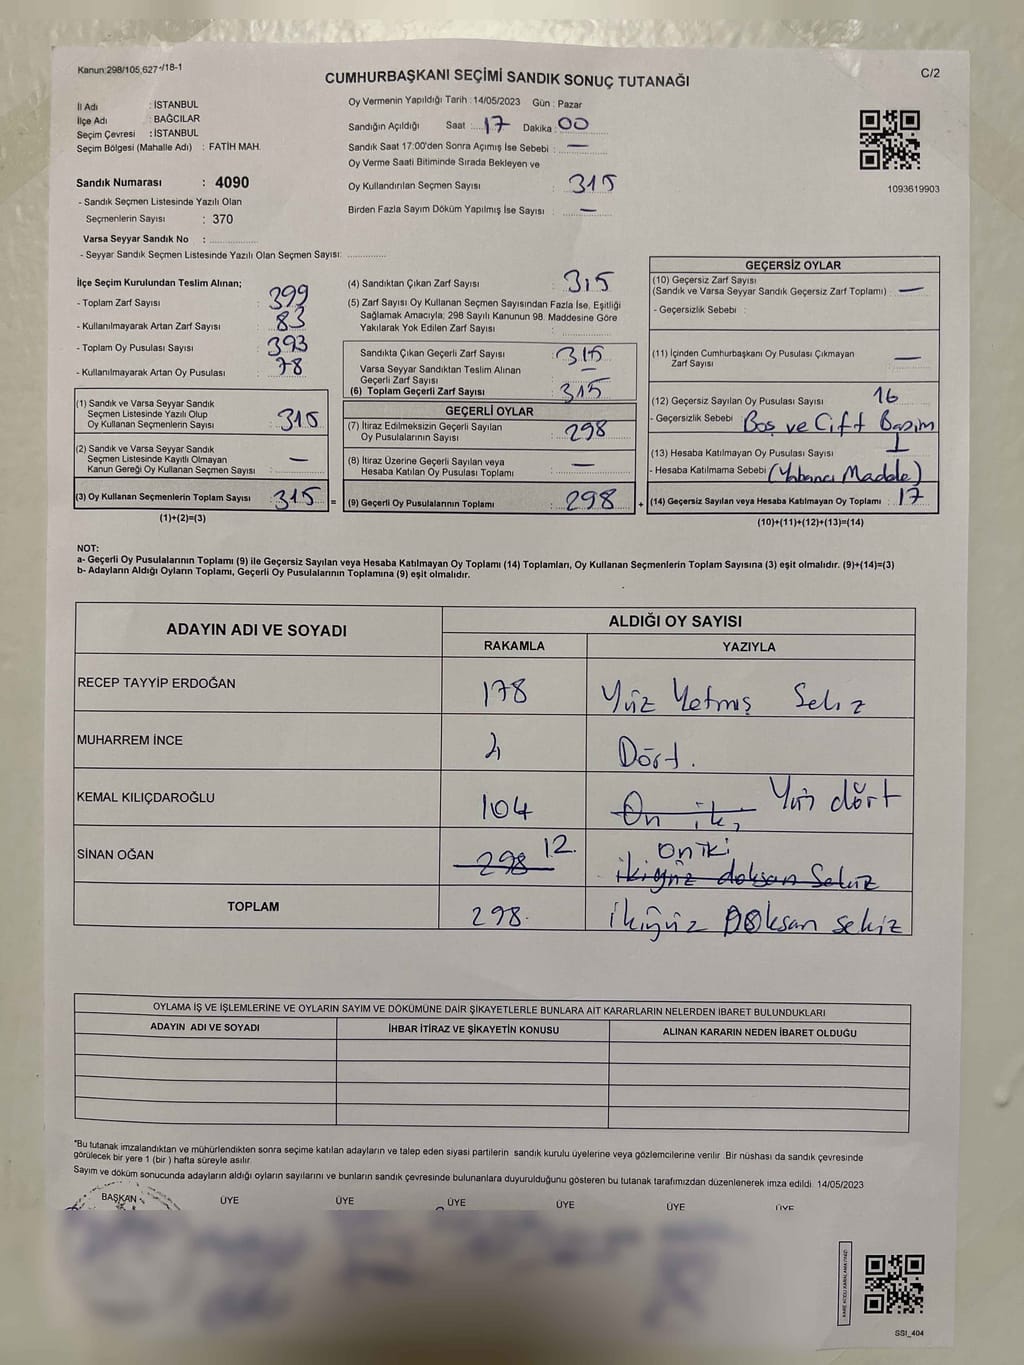 Kanun:298/105,627+/18-1
CUMHURBAŞKANI SEÇİMİ SANDIK SONUÇ TUTANAĞI
C/2
İl Adı : İSTANBUL
İlçe Adı : BAĞCILAR
Seçim Çevresi : İSTANBUL
Seçim Bölgesi (Mahalle Adı) : FATİH MAH.
Sandık Numarası : 4090
- Sandık Seçmen Listesinde Yazılı Olan
Seçmenlerin Sayısı : 370
Varsa Seyyar Sandık No :
- Seyyar Sandık Seçmen Listesinde Yazılı Olan Seçmen Sayısı:
Oy Vermenin Yapıldığı Tarih : 14/05/2023 Gün : Pazar
Sandığın Açıldığı Saat : 17 Dakika : 00
Sandık Saat 17:00'den Sonra Açımış İse Sebebi : —
Oy Verme Saati Bitiminde Sırada Bekleyen ve
Oy Kullandırılan Seçmen Sayısı : 315
Birden Fazla Sayım Döküm Yapılmış İse Sayısı : —
1093619903
İlçe Seçim Kurulundan Teslim Alınan;
- Toplam Zarf Sayısı : 399
- Kullanılmayarak Artan Zarf Sayısı : 83
- Toplam Oy Pusulası Sayısı : 393
- Kullanılmayarak Artan Oy Pusulası : 78
(1) Sandık ve Varsa Seyyar Sandık
Seçmen Listesinde Yazılı Olup
Oy Kullanan Seçmenlerin Sayısı : 315
(2) Sandık ve Varsa Seyyar Sandık
Seçmen Listesinde Kayıtlı Olmayan
Kanun Gereği Oy Kullanan Seçmen Sayısı : —
(3) Oy Kullanan Seçmenlerin Toplam Sayısı : 315
(1)+(2)=(3)
(4) Sandıktan Çıkan Zarf Sayısı : 315
(5) Zarf Sayısı Oy Kullanan Seçmen Sayısından Fazla İse, Eşitliği
Sağlamak Amacıyla; 298 Sayılı Kanunun 98. Maddesine Göre
Yakılarak Yok Edilen Zarf Sayısı :
Sandıkta Çıkan Geçerli Zarf Sayısı : 315
Varsa Seyyar Sandıktan Teslim Alınan
Geçerli Zarf Sayısı : —
(6) Toplam Geçerli Zarf Sayısı : 315
GEÇERLİ OYLAR
(7) İtiraz Edilmeksizin Geçerli Sayılan
Oy Pusulalarının Sayısı : 298
(8) İtiraz Üzerine Geçerli Sayılan veya
Hesaba Katılan Oy Pusulası Toplamı : —
= (9) Geçerli Oy Pusulalarının Toplamı : 298 +
GEÇERSİZ OYLAR
(10) Geçersiz Zarf Sayısı
(Sandık ve Varsa Seyyar Sandık Geçersiz Zarf Toplamı) : —
- Geçersizlik Sebebi :
(11) İçinden Cumhurbaşkanı Oy Pusulası Çıkmayan
Zarf Sayısı : —
(12) Geçersiz Sayılan Oy Pusulası Sayısı : 16
- Geçersizlik Sebebi : Boş ve Çift Basim
(13) Hesaba Katılmayan Oy Pusulası Sayısı : 1
- Hesaba Katılmama Sebebi : (Yabancı Madde)
(14) Geçersiz Sayılan veya Hesaba Katılmayan Oy Toplamı : 17
(10)+(11)+(12)+(13)=(14)
NOT:
a- Geçerli Oy Pusulalarının Toplamı (9) ile Geçersiz Sayılan veya Hesaba Katılmayan Oy Toplamı (14) Toplamları, Oy Kullanan Seçmenlerin Toplam Sayısına (3) eşit olmalıdır. (9)+(14)=(3)
b- Adayların Aldığı Oyların Toplamı, Geçerli Oy Pusulalarının Toplamına (9) eşit olmalıdır.
ADAYIN ADI VE SOYADI
ALDIĞI OY SAYISI
RAKAMLA YAZIYLA
RECEP TAYYİP ERDOĞAN 178 Yüz Yetmiş Sekiz
MUHARREM İNCE 4 Dört.
KEMAL KILIÇDAROĞLU 104 On iki Yüz dört
SİNAN OĞAN 298 12. On iki
ikiyüz doksan Sekiz
TOPLAM 298. ikiyüz Doksan sekiz
OYLAMA İŞ VE İŞLEMLERİNE VE OYLARIN SAYIM VE DÖKÜMÜNE DAİR ŞİKAYETLERLE BUNLARA AİT KARARLARIN NELERDEN İBARET BULUNDUKLARI
ADAYIN ADI VE SOYADI İHBAR İTİRAZ VE ŞİKAYETİN KONUSU ALINAN KARARIN NEDEN İBARET OLDUĞU
*Bu tutanak imzalandıktan ve mühürlendikten sonra seçime katılan adayların ve talep eden siyasi partilerin sandık kurulu üyelerine veya gözlemcilerine verilir. Bir nüshası da sandık çevresinde
görülecek bir yere 1 (bir) hafta süreyle asılır.
Sayım ve döküm sonucunda adayların aldığı oyların sayılarını ve bunların sandık çevresinde bulunanlara duyurulduğunu gösteren bu tutanak tarafımızdan düzenlenerek imza edildi. 14/05/2023
BAŞKAN ÜYE ÜYE ÜYE ÜYE ÜYE ÜYE
SSI_404